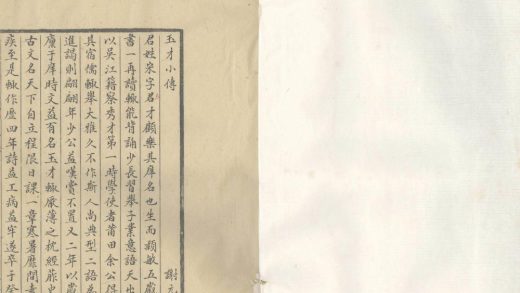 玉才小傳
謝元
君姓宋字君才顧樂其庠名也生而穎敏五歲
書一再讀輒能背誦少長習舉子業意語天出
以吳江籍察秀才第一時學使者莆田余公得
其宿儒輒舉大雅久不作斯人尚典型二語為
進謁則翩翩年少公益嘆賞不置又二年以歲
廩于庠時文益有名玉才輒厭薄之枕經葄史
古文名天下自立程限日課一章寒暑靡間者
疾至是輒作歷四年詩益工病益牢遂卒于癸